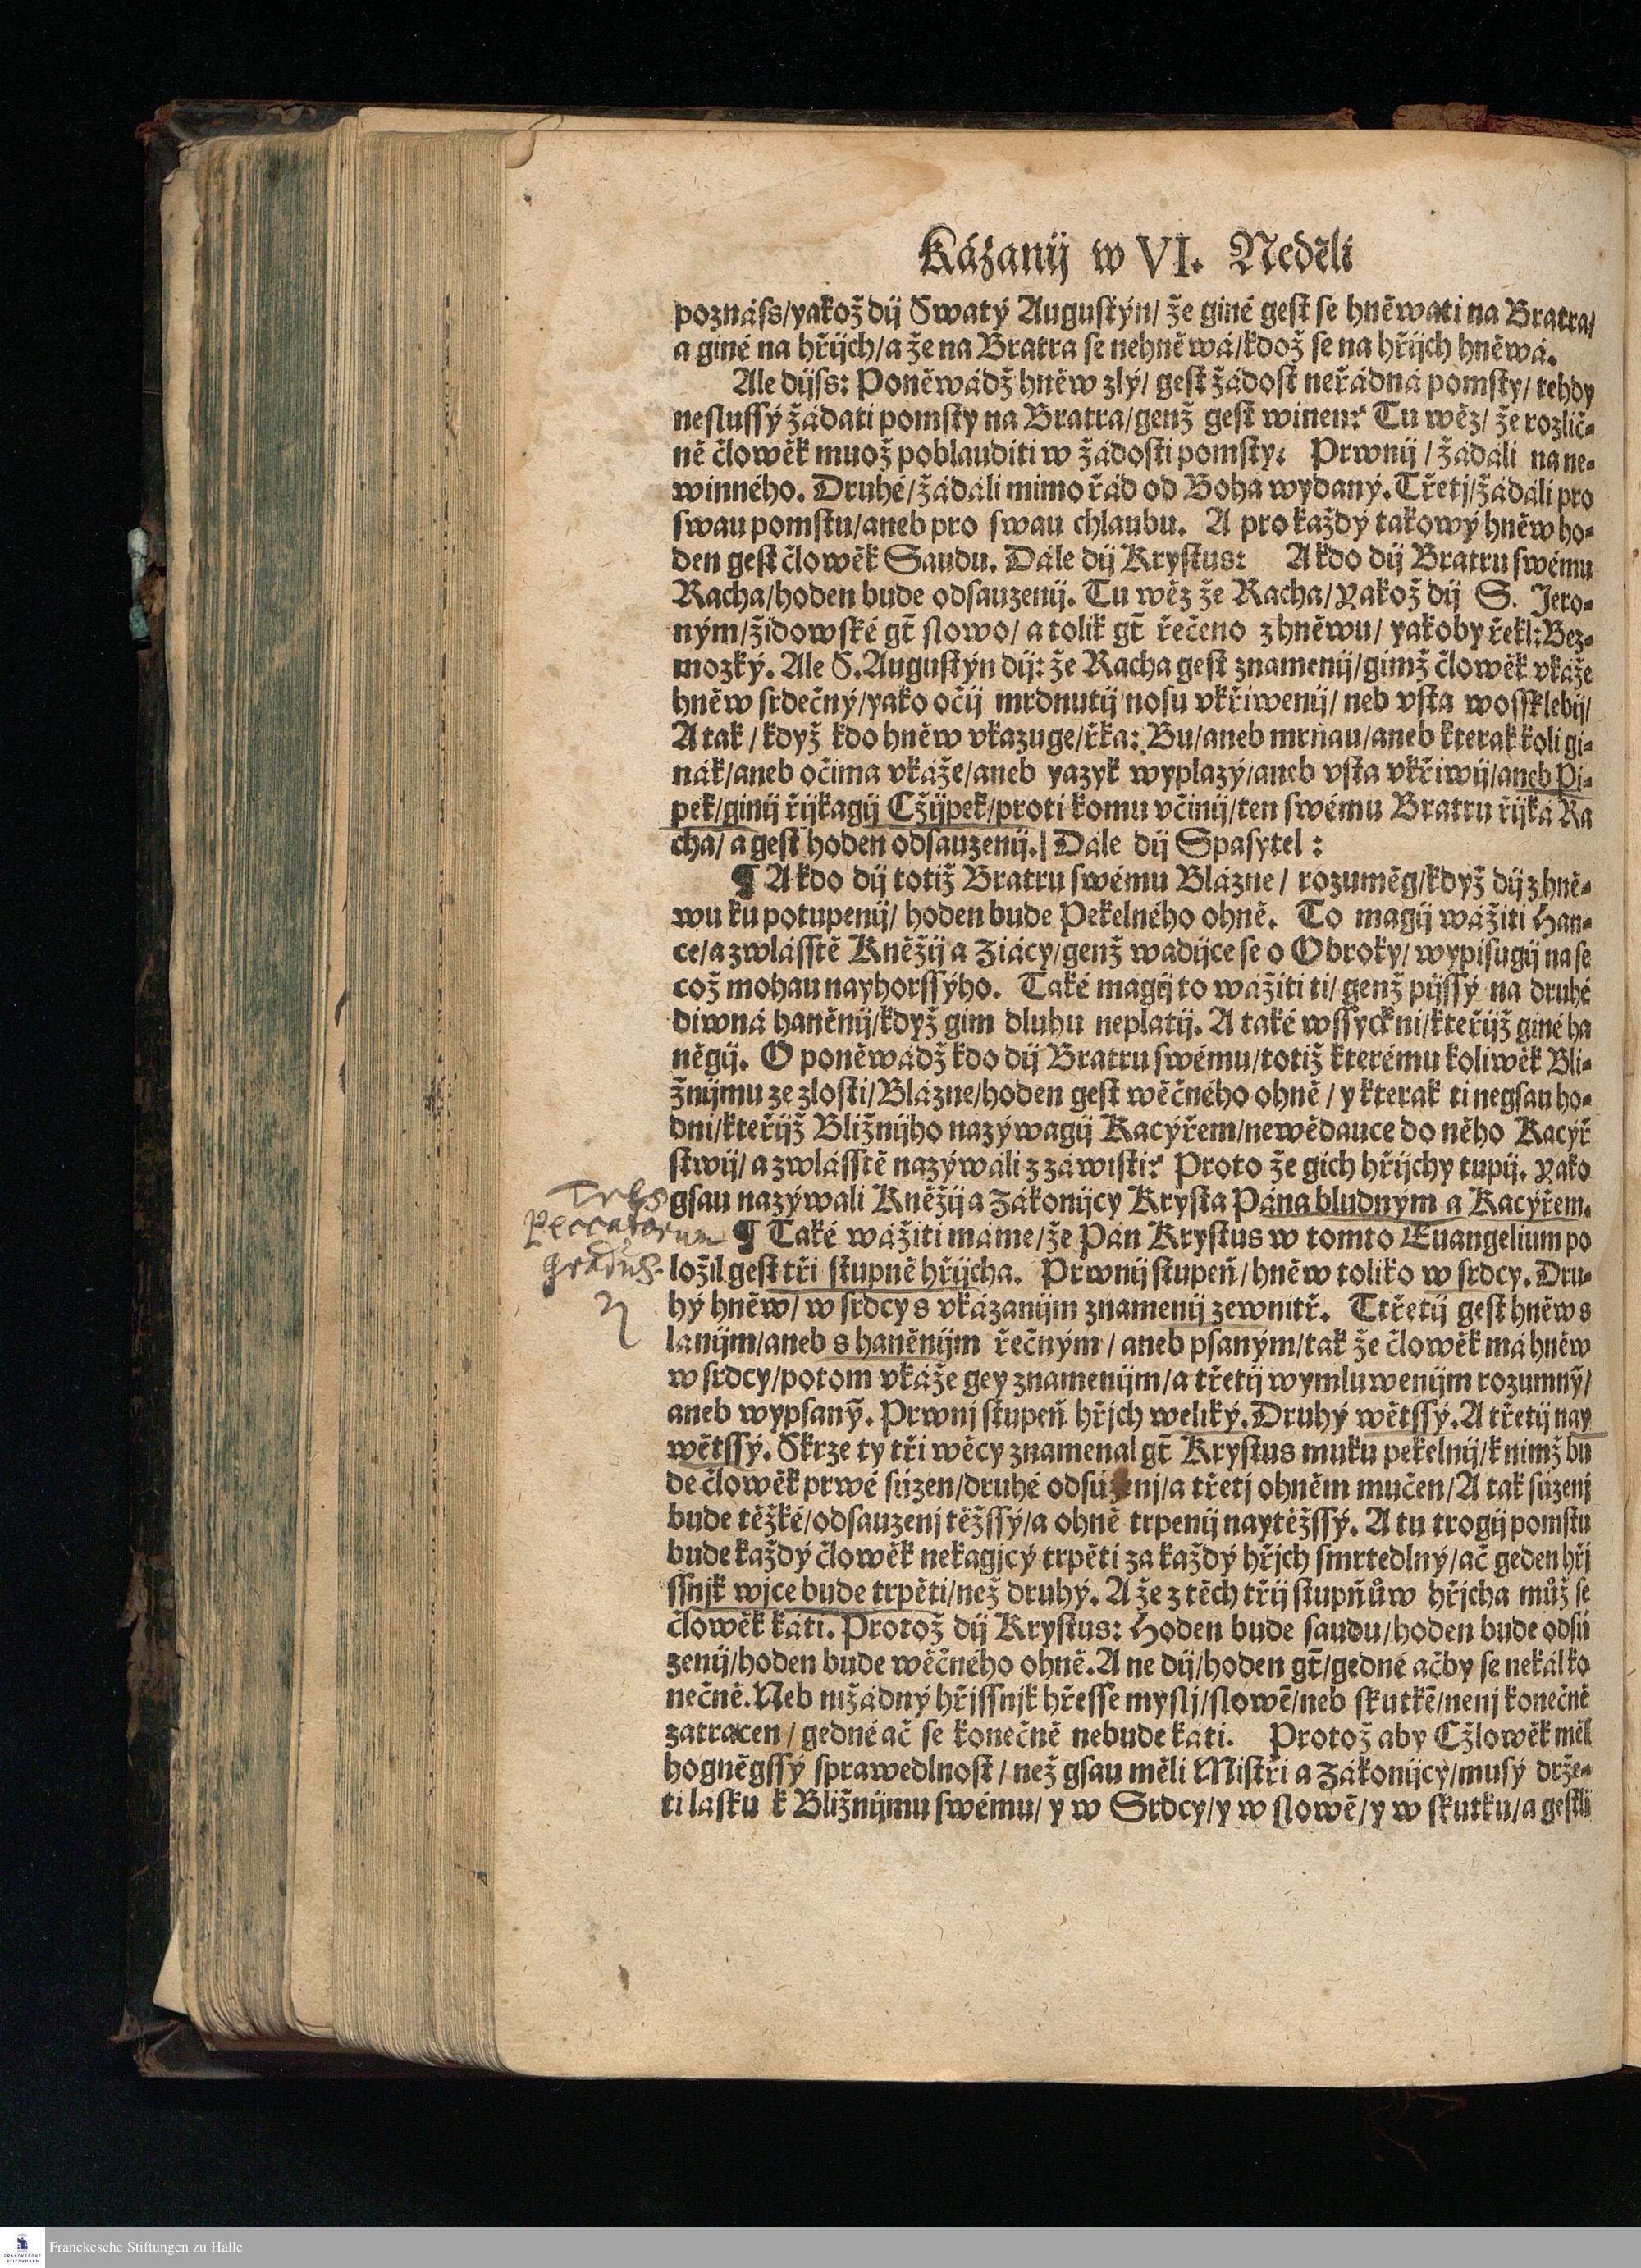 Kázanij w VI. Neděli
poznáſs/yakož dij Swatý Auguſtýn/ že giné geſt ſe hněwati na Bratra/
a giné na hřijch/a že na Bratra ſe nehněwá/kdož ſe na hřijch hněwá.
Ale dijſs: Poněwádž hněw zlý/ geſt žádoſt neřádná pomſty/ tehdy
neſluſſý žádati pomſty na Bratra/genž geſt winen? Tu wěz/ že rozlič-
ně člowěk muož poblauditi w žádoſti pomſty: Prwnij / žádáli na ne-
winného. Druhé/žádáli mimo řád od Boha wydaný. Třetj/žádáli pro
ſwau pomſtu/aneb pro ſwau chlaubu. A pro každý takowý hněw ho-
den geſt člowěk Saudu. Dále dij Kryſtus: A kdo dij Bratru ſwému
Racha/hoden bude odſauzenij. Tu wěz že Racha/Yakož dij S. Jero-
ným/židowſké gt̄ ſlowo/ a tolik gt̄ řečeno z hněwu/ yakoby řekl: Bez-
mozký. Ale S. Auguſtýn dij: že Racha geſt znamenij/gimž člowěk vkáže
hněw ſrdečný/yako očij mrdnutij noſu vkřiwenij/ neb vſta woſſklebij/
A tak / když kdo hněw vkazuge/řka: Bu/aneb mrňau/aneb kterak koli gi-
nák/aneb očima vkáže/aneb yazyk wyplazý/aneb vſta vkřiwij/aneb Pi-
pek/ginij řijkagij Cžijpek/proti komu včinij/ten ſwému Bratru řijká Ra
cha/ a geſt hoden odſauzenij. Dále dij Spaſytel:
¶ A kdo dij totiž Bratru ſwému Blázne / rozuměg/když dij z hně-
wu ku potupenij/ hoden bude Pekelného ohně. To magij wážiti Han-
ce/a zwláſſtě Kněžij a Žiácy/genž wadijce ſe o Obroky/ wypiſugij na ſe
což mohau nayhorſſýho. Také magij to wážiti ti/ genž pijſſý na druhé
diwná haněnij/když gim dluhu neplatij. A také wſſyckni/kteřijž giné ha
něgij. O poněwádž kdo dij Bratru ſwému/totiž kterému koliwěk Bli-
žnijmu ze zloſti/Blázne/hoden geſt wěčného ohně / y kterak ti negſau ho-
dni/kteřijž Bližnijho nazýwagij Kacýřem/newědauce do něho Kacýř
ſtwij/ a zwláſſtě nazýwáli z záwiſti? Proto že gich hřijchy tupij. Yako
gſau nazýwali Kněžij a Zákonijcy Kryſta Pána bludným a Kacýřem.
Tres
Peccatorum
gradus.
¶ Také wážiti máme/že Pán Kryſtus w tomto Euangelium po
ložil geſt tři ſtupně hřijcha. Prwnij ſtupeň/hněw toliko w ſrdcy. Dru-
hý hněw/ w ſrdcy s vkázanijm znamenij zewnitř. Ttřetij geſt hněw s
lanijm/aneb s haněnijm řečným / aneb pſaným/tak že člowěk má hněw
w ſrdcy/potom vkáže gey znamenijm/a třetij wymluwenijm rozumný̄/
aneb wypſaný̄. Prwnj ſtupeň hřjch weliký. Druhý wětſſý. A třetij nay
wětſſý. Skrze ty tři wěcy znamenal gt̄ Kryſtus muku pekelnij/k nimž bu
de člowěk prwé ſúzen/druhé odſúzenj/a třetj ohněm mučen/A tak ſúzenj
bude těžké/odſauzenj těžſſý/a ohně trpenij naytěžſſý. A tu trogij pomſtu
bude každý člowěk nekagjcý trpěti za každý hřjch ſmrtedlný/ač geden hřj
ſſnjk wjce bude trpěti/než druhý. A že z těch třij ſtupňůw hřjcha můž ſe
člowěk káti. Protož dij Kryſtus: Hoden bude ſaudu/hoden bude odſú
zenij/hoden bude wěčného ohně. A ne dij/hoden gt̄/gedné ačby ſe nekál ko
nečně. Neb nižádný hřjſſnjk hřeſſe myſlj/ſlowē/neb ſkutkē/nenj konečně
zatracen / gedné ač ſe konečně nebude káti. Protož aby Cžlowěk měl
hogněgſſý ſprawedlnoſt/ než gſau měli Miſtři a Zákonijcy/muſý drže-
ti láſku k Bližnijmu ſwému/ y w Srdcy/y w ſlowě/y w ſkutku/a geſtli
Franckesche Stiftungen zu Halle